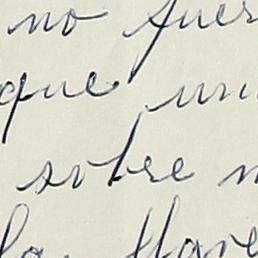 no fuer
que un
sobre
la llave